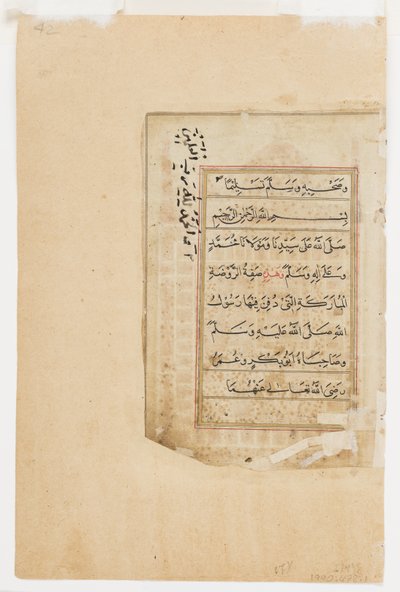 وَصَحْبِهِ وَسَلَّمَ تَسْلِيمًا
بِسْمِ اللهِ الرَّحْمٰنِ الرَّحِيمِ
صَلَّى اللهُ عَلَى سَيِّدِنَا وَمَوْلَانَا مُحَمَّدٍ
وَعَلَى اٰلِهِ وَسَلَّمَ وَهَذِهِ صِفَةُ الرَّوْضَةِ
الْمُبَارَكَةِ الَّتِي دُفِنَ فِيهَا رَسُولُ
اللهِ صَلَّى اللهُ عَلَيْهِ وَسَلَّمَ
وَصَاحِبَاهُ اَبُوبَكْرٍ وَعُمَرُ
رَضِيَ اللهُ تَعَالٰى عَنْهُمَا
الحمد لله رب
42
1990.478.1